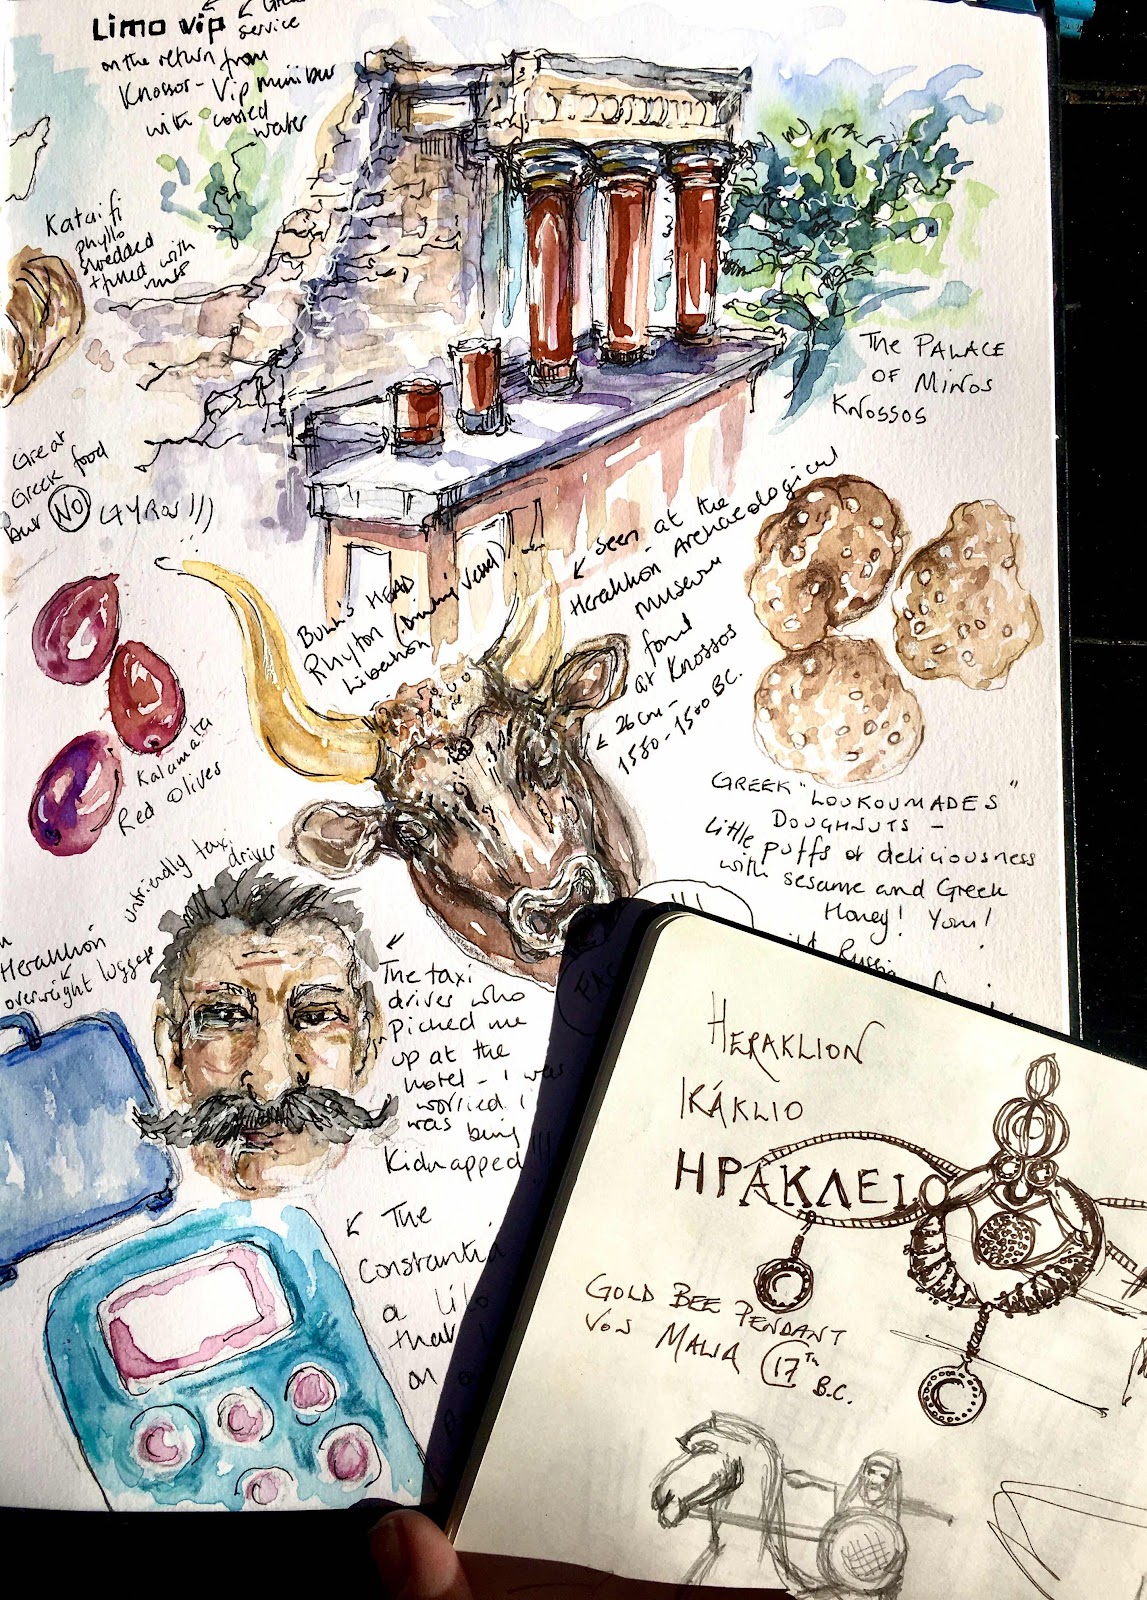 Limo vip
service
on the return from
Knossos - Vip minibus
with cooled
water
Kataifi
phyllo
shredded
+ filled with
nuts
THE PALACE
OF MINOS
KNOSSOS
Great
Greek food
but NO GYROS!!!
seen at the
Heraklion Archaeological
museum
found
at Knossos
26cm -
1550 - 1500 BC.
BULL'S HEAD
Rhyton (drinking vessel)
Libation
Kalamata
Red Olives
GREEK "LOUKOUMADES"
DOUGHNUTS -
Little puffs of deliciousness
with sesame and Greek
Honey! Yom!
Russia
unfriendly taxi
driver
Heraklion
overweight luggage
The taxi
driver who
picked me
up at the
hotel - I was
worried I
was being
Kidnapped!!!
FAC
The
Constantin
a
tha
on
HERAKLION
IRÁKLIO
ΗΡΆΚΛΕΙΟ
GOLD BEE PENDANT
VON MALIA 17TH
B.C.